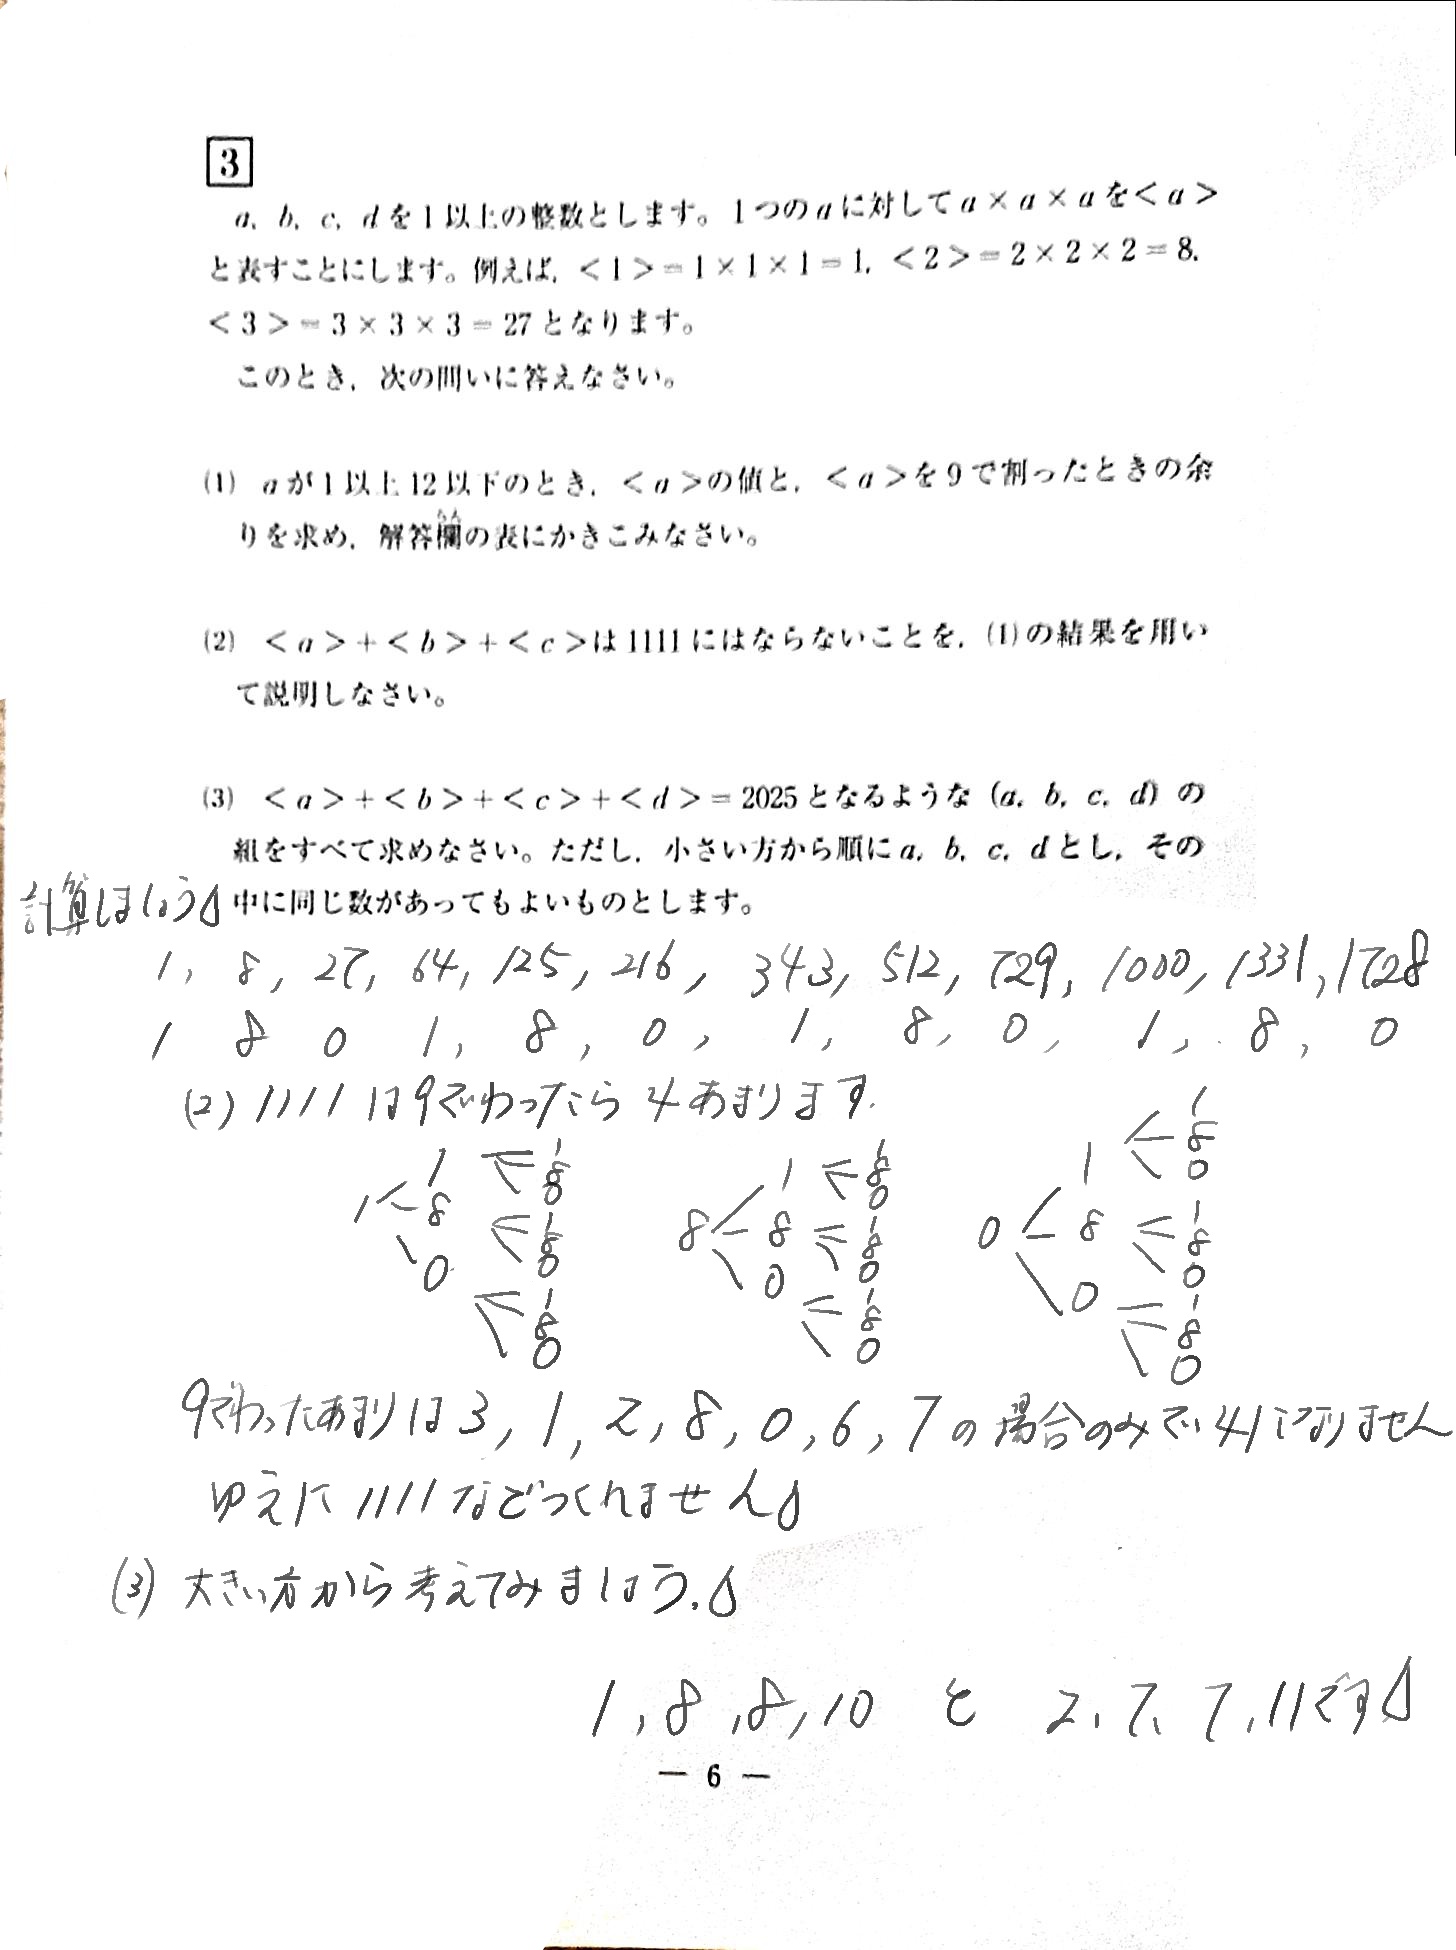 3
a, b, c, dを1以上の整数とします。1つのaに対してa×a×aを<a>
と表すことにします。例えば, <1>=1×1×1=1, <2>=2×2×2=8,
<3>=3×3×3=27となります。
このとき, 次の問いに答えなさい。
(1) aが1以上12以下のとき, <a>の値と, <a>を9で割ったときの余
らん
りを求め, 解答欄の表にかきこみなさい。
(2) <a>+<b>+<c>は1111にはならないことを, (1)の結果を用い
て説明しなさい。
(3) <a>+<b>+<c>+<d>=2025となるような (a, b, c, d) の
組をすべて求めなさい。ただし, 小さい方から順にa, b, c, dとし, その
中に同じ数があってもよいものとします。
計算しましょう
1, 8, 27, 64, 125, 216, 343, 512, 729, 1000, 1331, 1728
1 8 0 1, 8, 0, 1, 8, 0, 1, 8, 0
(2) 1111は9でわったら4あまります.
1 1 1 8 0
8 1 8 0
0 1 8 0
8 1 1 8 0
8 1 8 0
0 1 8 0
0 1 1 8 0
8 1 8 0
0 1 8 0
9でわったあまりは3, 1, 2, 8, 0, 6, 7の場合のみで、4になりません
ゆえに1111などつくれません
(3) 大きい方から考えてみましょう.
1, 8, 8, 10 と 2、7、7、11です
— 6 —